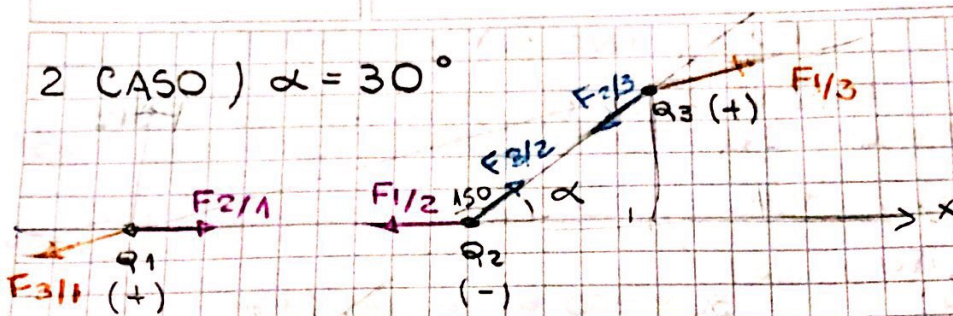 2 CASO) α = 30°
F2/3
F1/3
Q3 (+)
F3/2
F2/1
F1/2
150
α
x
Q1
Q2
F3/1
(+)
(-)